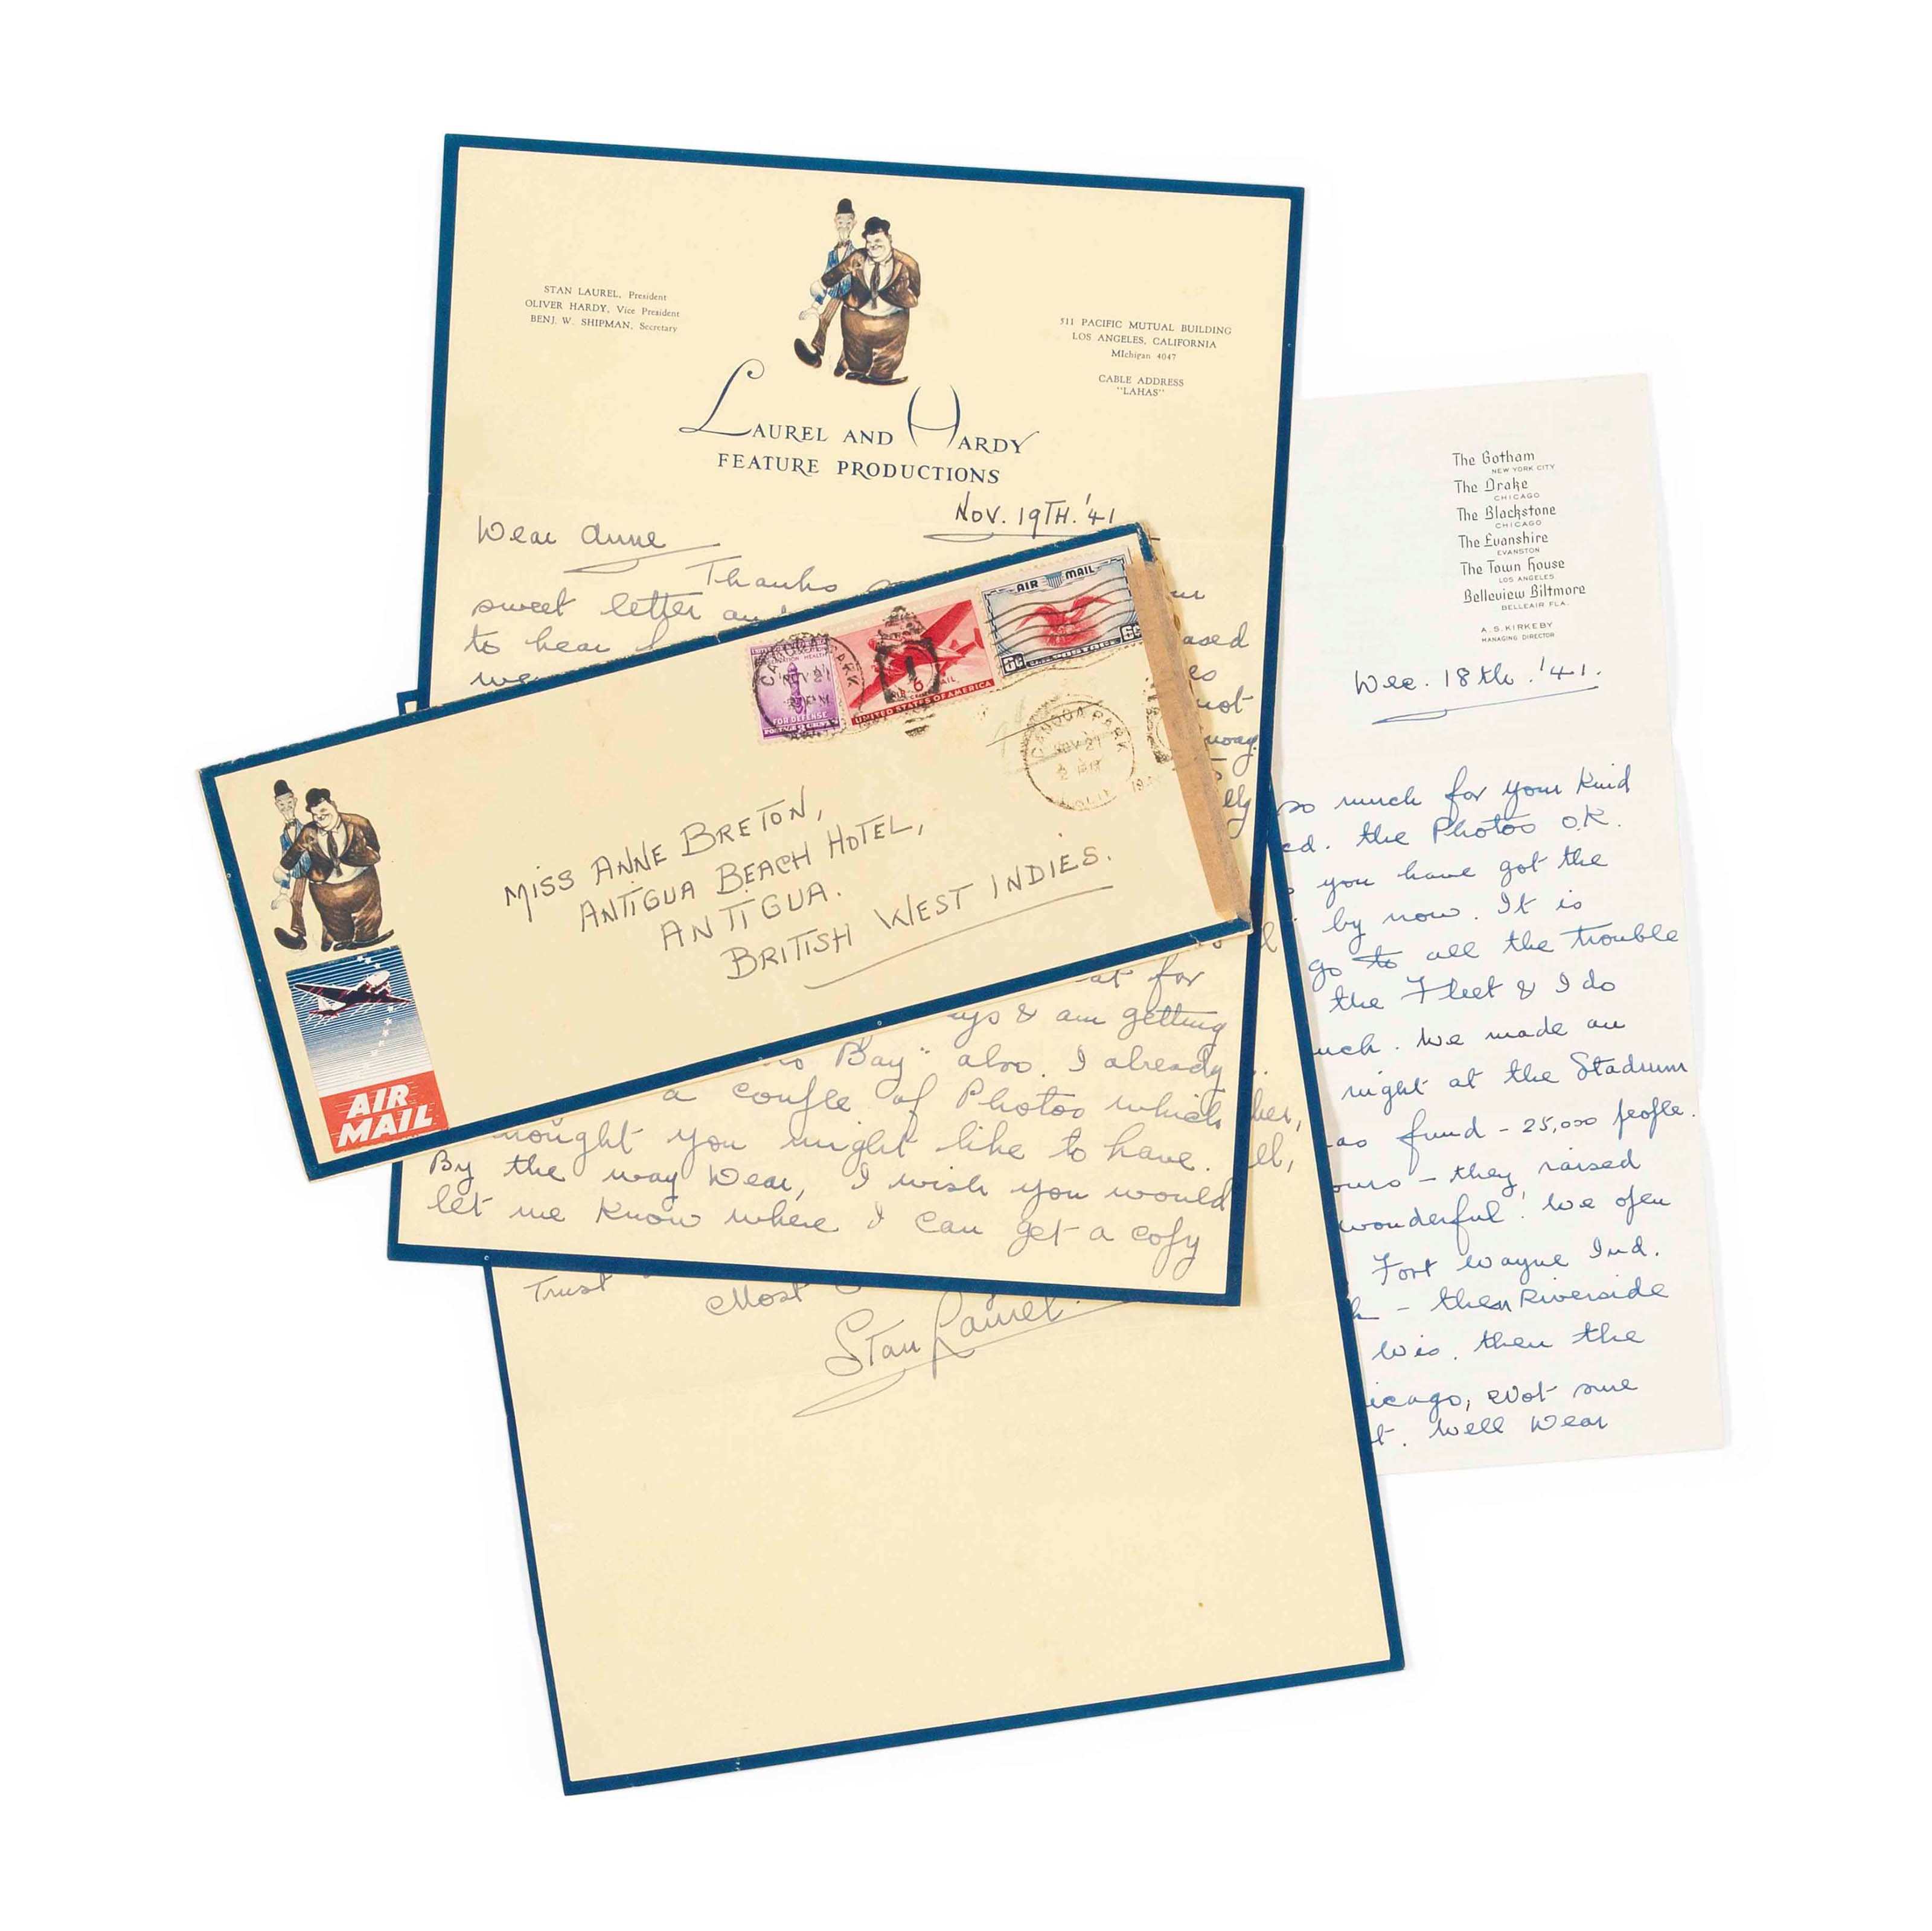 STAN LAUREL, President
OLIVER HARDY, Vice President
BENJ. W. SHIPMAN, Secretary
511 PACIFIC MUTUAL BUILDING
LOS ANGELES, CALIFORNIA
MIchigan 4047
CABLE ADDRESS
"LAHAS"
LAUREL AND HARDY
FEATURE PRODUCTIONS
Nov. 19TH. '41
Dear Anne
Thanks
sweet letter
to hear
we
not
way
AIR MAIL
6¢ U.S. POSTAGE 6¢
UNITED STATES OF AMERICA
FOR DEFENSE
CANOGA PARK
NOV 21
CANOGA PARK
NOV 21
MISS ANNE BRETON,
ANTIGUA BEACH HOTEL,
ANTIGUA.
BRITISH WEST INDIES.
AIR
MAIL
for
& am getting
Bay" also. I already
a couple of Photos which
you might like to have.
By the way Dear, I wish you would
let me know where I can get a copy
Trust
Most
Stan Laurel.
The Gotham
NEW YORK CITY
The Drake
CHICAGO
The Blackstone
CHICAGO
The Evanshire
EVANSTON
The Town House
LOS ANGELES
Belleview Biltmore
BELLEAIR FLA.
A. S. KIRKEBY
MANAGING DIRECTOR
Dec. 18th. '41.
so much for your kind
the Photos O.K.
you have got the
by now. It is
go to all the trouble
the Fleet & I do
We made an
night at the Stadium
fund - 25,000 people.
- they raised
wonderful! We open
Fort Wayne Ind.
- then Riverside
Wis. then the
Not sure
Well Dear